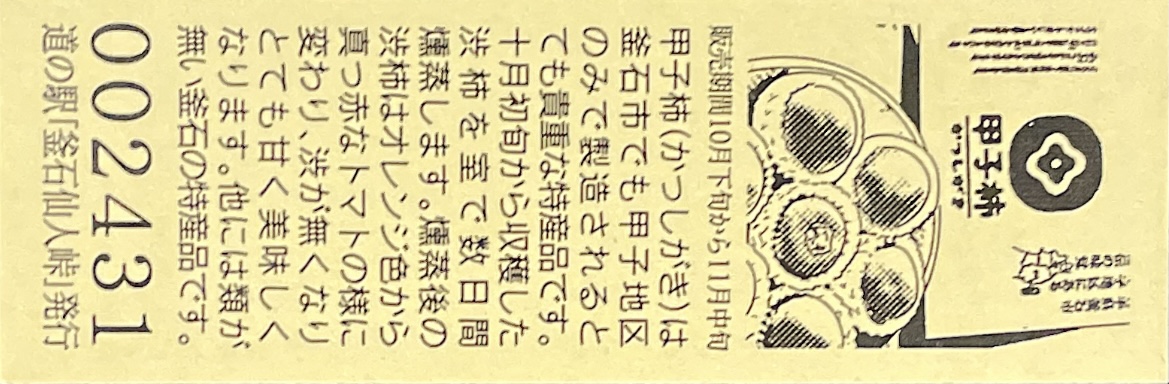 甲子柿
かつしがき
販売期間10月下旬から11月中旬
甲子柿(かつしがき)は
釜石市でも甲子地区
のみで製造されると
ても貴重な特産品です。
十月初旬から収穫した
渋柿を室で数日間
燻蒸します。燻蒸後の
渋柿はオレンジ色から
真っ赤なトマトの様に
変わり、渋が無くなり
とても甘く美味しく
なります。他には類が
無い釜石の特産品です。
002431
道の駅「釜石仙人峠」発行